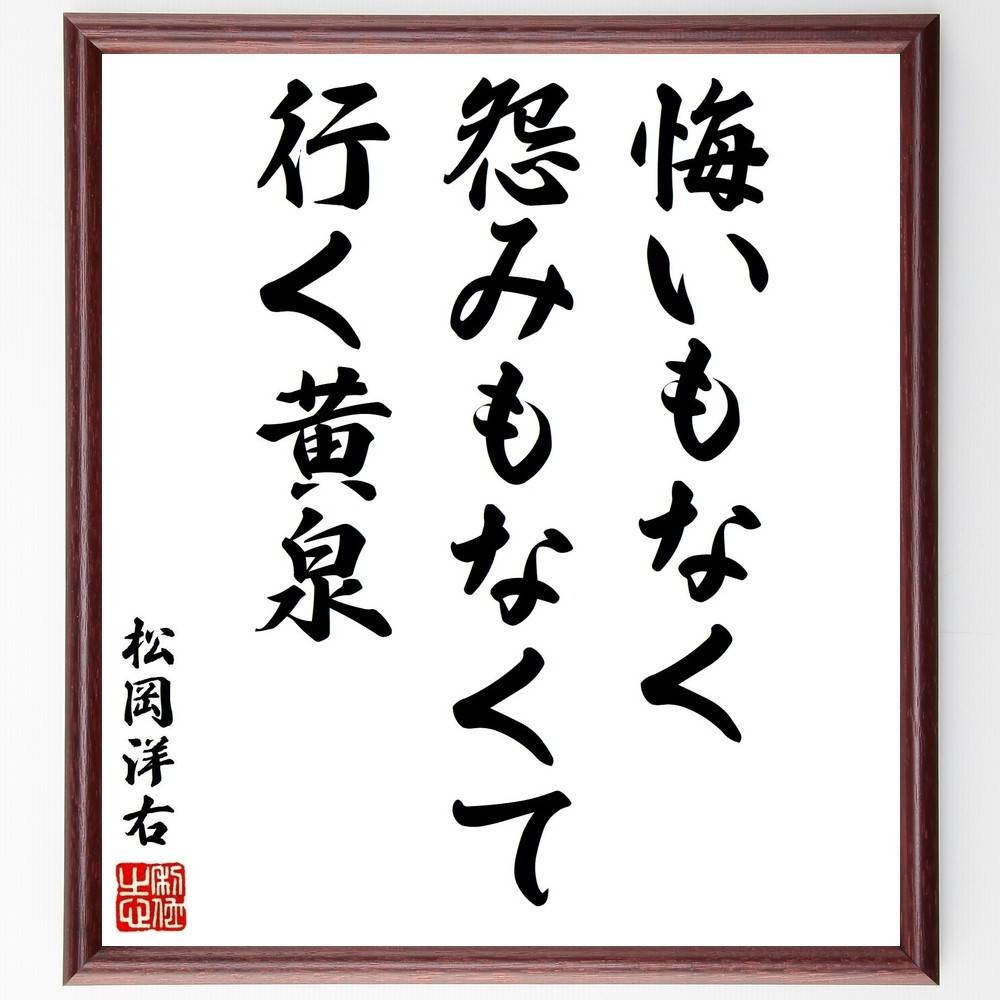 悔いもなく
怨みもなくて
行く黄泉
松岡洋右